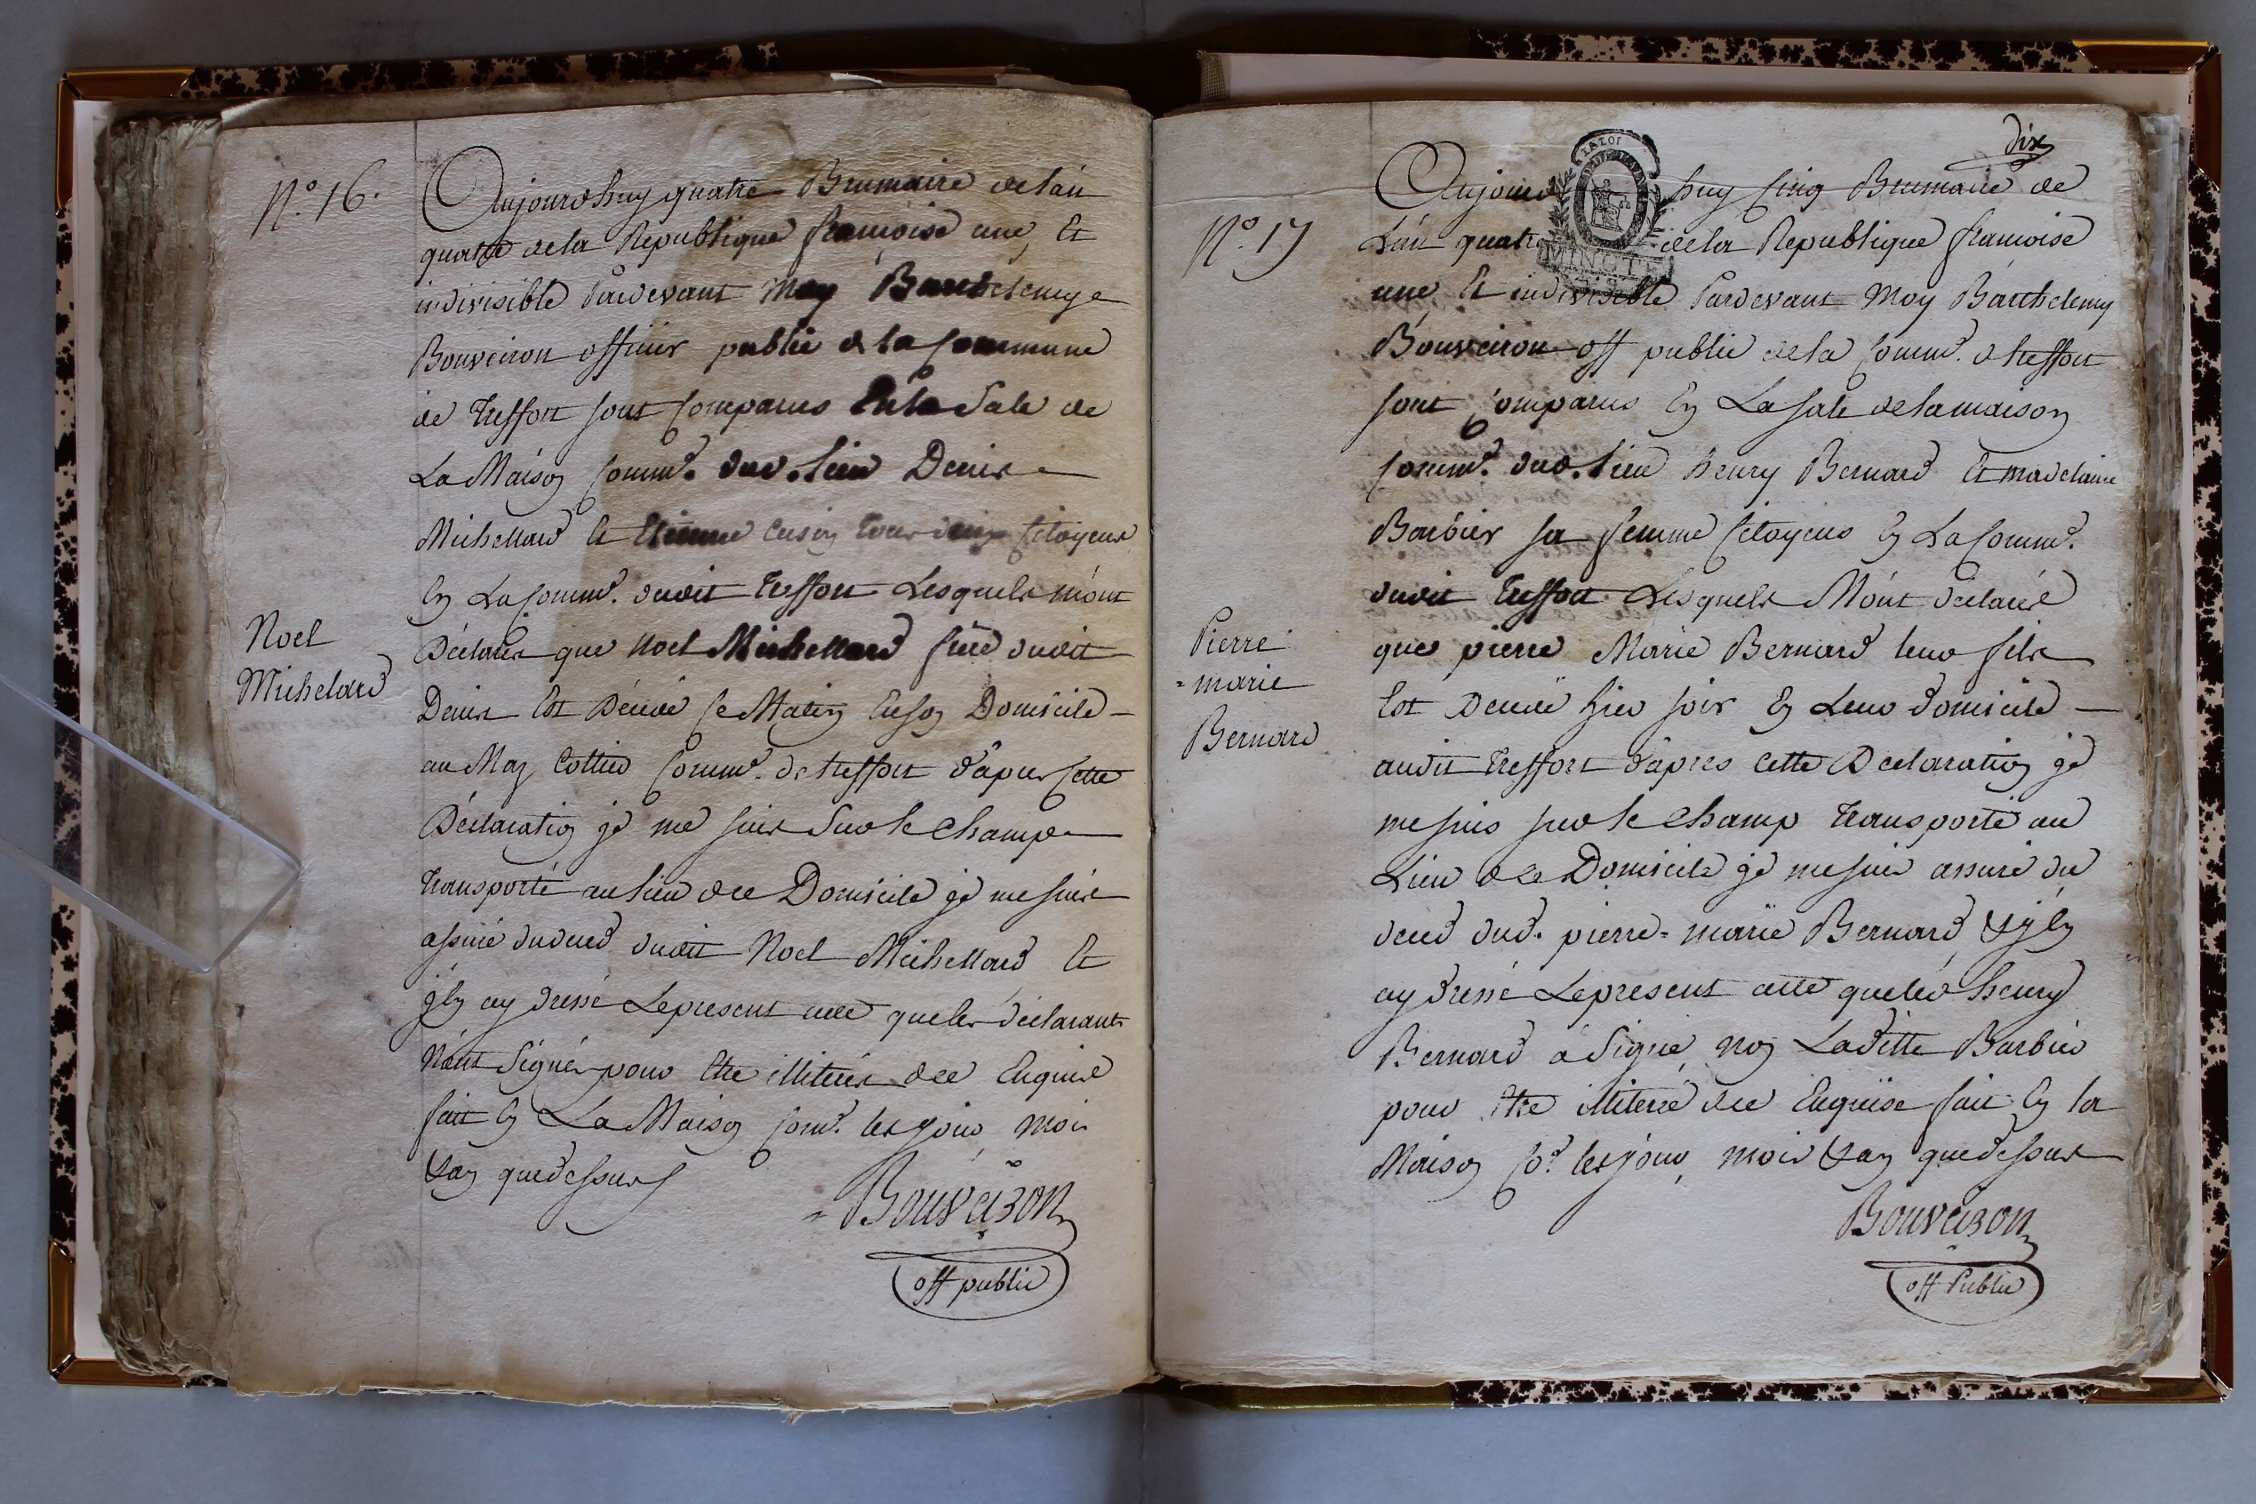 N.° 16.
Aujourdhuy quatre Brumaire de l'an
quatre de la Republique francoise une, Et
indivisible Pardevant Moy Barthelemy
Bouveiron officier public de la Commune
de Treffort sont Comparus En la Sale de
La Maison Comm.e dud. lieu Denis
Michellard Et Etienne Cusin tous deux Citoyens
En La Comm.e dudit Treffort Lesquels m'ont
Déclarés que Noel Michellard frere dudit
Denis Est Décédé ce Matin En son Domicile
au Maz Cottier Comm.e de treffort d'apres Cette
Déclaration je me suis Sur le Champ
transporté au lieu de ce Domicile je me suis
assuré du deces dudit Noel Michellard Et
j'En ay dressé Le present acte que les déclarants
N'ont Signés pour Etre illiterés de ce Enquis
fait En La Maison Com.e les jour, mois
& an que dessus
Bouveiron
off public
Noel
Michelard
dix
N.° 17
Aujourd huy Cinq Brumaire de
L'an quatre de la Republique francoise
une Et indivisible Pardevant Moy Barthelemy
Bouveiron off public de la Comm.e de treffort
sont Comparus En La sale de la maison
Comm.e dud. lieu henry Bernard Et madelaine
Barbier sa femme Citoyens En La Comm.e
dudit treffort Lesquels M'ont déclaré
que pierre Marie Bernard leur fils
Est Decedé hier soir En Leur domicile
audit treffort d'apres cette Declaration je
me suis sur le Champ transporté au
Lieu de ce Domicile je me suis assuré du
deces dud. pierre = marie Bernard & j'En
ay dressé Le present acte que led henry
Bernard a Signé, non Laditte Barbier
pour Etre illiteré de ce Enquise fait En la
Maison Co.e les jour, mois & an que dessus
Bouveiron
off Public
Pierre
= marie
Bernard
LA LOI
MINUTE